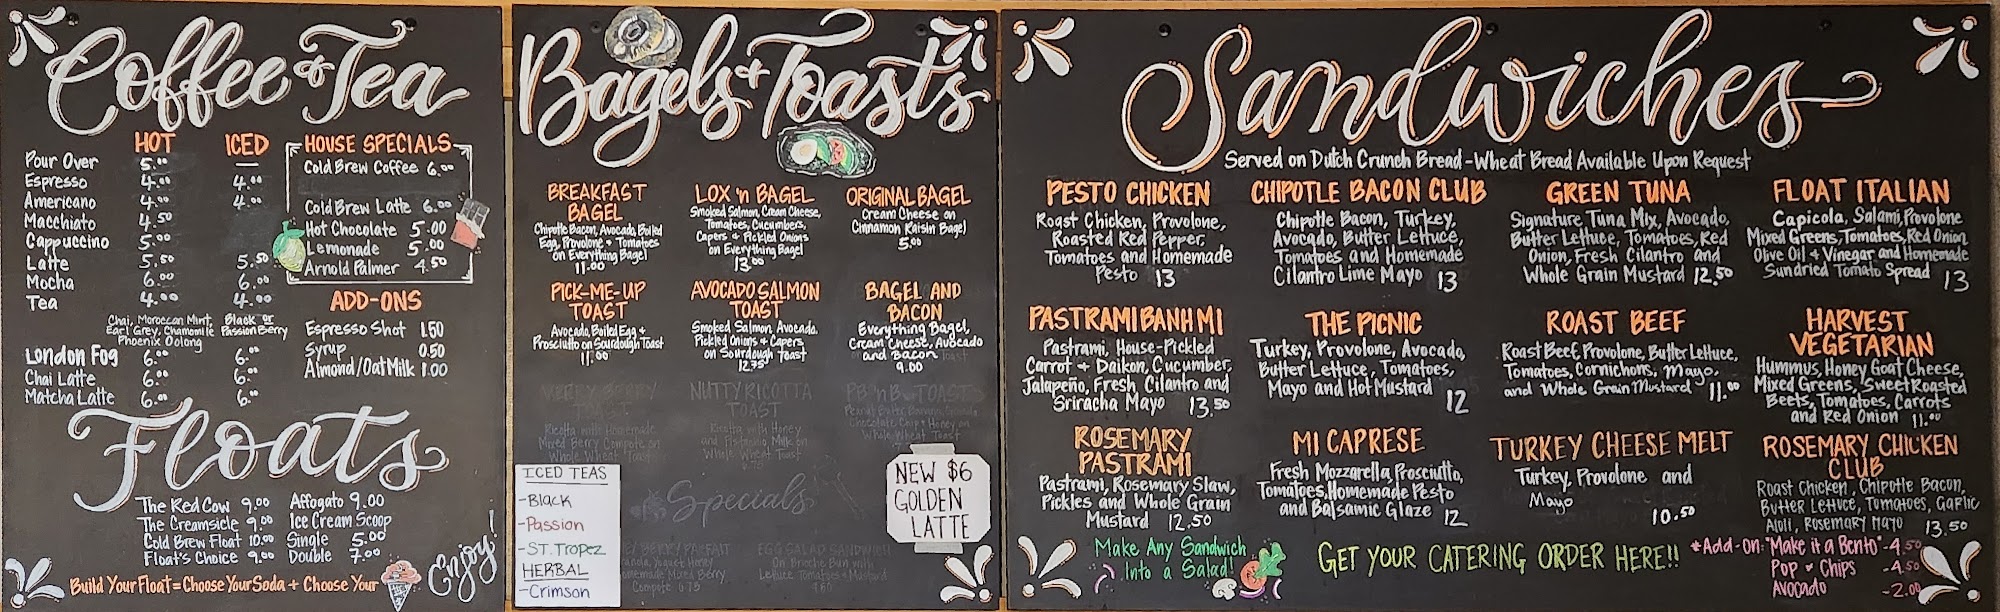 Coffee & Tea
HOT ICED
Pour Over 5.00 —
Espresso 4.00 4.00
Americano 4.00 4.00
Macchiato 4.50
Cappuccino 5.00
Latte 5.50 5.50
Mocha 6.00 6.00
Tea 4.00 4.00
Chai, Moroccan Mint,
Earl Grey, Chamomile
Phoenix Oolong
Black or
Passion Berry
London Fog 6.00 6.00
Chai Latte 6.00 6.00
Matcha Latte 6.00 6.00
HOUSE SPECIALS
Cold Brew Coffee 6.00
Cold Brew Latte 6.00
Hot Chocolate 5.00
Lemonade 5.00
Arnold Palmer 4.50
ADD-ONS
Espresso Shot 1.50
Syrup 0.50
Almond/Oat Milk 1.00
Floats
The Red Cow 9.00
The Creamsicle 9.00
Cold Brew Float 10.00
Float's Choice 9.00
Affogato 9.00
Ice Cream Scoop
Single 5.00
Double 7.00
Build Your Float = Choose Your Soda + Choose Your
Enjoy!
Bagels & Toasts
BREAKFAST
BAGEL
Chipotle Bacon, Avocado, Boiled
Egg, Provolone & Tomatoes
on Everything Bagel
11.00
LOX 'n BAGEL
Smoked Salmon, Cream Cheese,
Tomatoes, Cucumbers,
Capers & Pickled Onions
on Everything Bagel
13.00
ORIGINAL BAGEL
Cream Cheese on
Cinnamon Raisin Bagel
5.00
PICK-ME-UP
TOAST
Avocado, Boiled Egg &
Prosciutto on Sourdough Toast
11.00
AVOCADO SALMON
TOAST
Smoked Salmon, Avocado,
Pickled Onions & Capers
on Sourdough Toast
12.75
BAGEL AND
BACON
Everything Bagel,
Cream Cheese, Avocado
and Bacon
9.00
VERRY BERRY
TOAST
Ricotta with Homemade
Mixed Berry Compote on
Whole Wheat Toast
NUTTY RICOTTA
TOAST
Ricotta with Honey
and Pistachio Milk on
Whole Wheat Toast
6.75
PB 'n B TOAST
Peanut Butter, Banana,
Chocolate Chip & Honey on
Whole Wheat Toast
Specials
BERRY PARFAIT
Yogurt Honey
Homemade Mixed Berry
Compote 6.75
EGG SALAD SANDWICH
On Brioche Bun with
Lettuce Tomatoes & Mustard
ICED TEAS
-Black
-Passion
-ST. Tropez
HERBAL
-Crimson
NEW $6
GOLDEN
LATTE
Sandwiches
Served on Dutch Crunch Bread - Wheat Bread Available Upon Request
PESTO CHICKEN
Roast Chicken, Provolone,
Roasted Red Pepper,
Tomatoes and Homemade
Pesto 13
CHIPOTLE BACON CLUB
Chipotle Bacon, Turkey,
Avocado, Butter Lettuce,
Tomatoes and Homemade
Cilantro Lime Mayo 13
GREEN TUNA
Signature Tuna Mix, Avocado,
Butter Lettuce, Tomatoes, Red
Onion, Fresh Cilantro and
Whole Grain Mustard 12.50
FLOAT ITALIAN
Capicola, Salami, Provolone
Mixed Greens, Tomatoes, Red Onion
Olive Oil & Vinegar and Homemade
Sundried Tomato Spread 13
PASTRAMI BANH MI
Pastrami, House-Pickled
Carrot & Daikon, Cucumber,
Jalapeño, Fresh Cilantro and
Sriracha Mayo 13.50
THE PICNIC
Turkey, Provolone, Avocado,
Butter Lettuce, Tomatoes,
Mayo and Hot Mustard 12
ROAST BEEF
Roast Beef, Provolone, Butter Lettuce,
Tomatoes, Cornichons, Mayo,
and Whole Grain Mustard 11.00
HARVEST
VEGETARIAN
Hummus, Honey Goat Cheese,
Mixed Greens, Sweet Roasted
Beets, Tomatoes, Carrots
and Red Onion 11.00
ROSEMARY
PASTRAMI
Pastrami, Rosemary Slaw,
Pickles and Whole Grain
Mustard 12.50
MI CAPRESE
Fresh Mozzarella, Prosciutto,
Tomatoes, Homemade Pesto
and Balsamic Glaze 12
TURKEY CHEESE MELT
Turkey, Provolone and
Mayo
10.50
ROSEMARY CHICKEN
CLUB
Roast Chicken, Chipotle Bacon,
Butter Lettuce, Tomatoes, Garlic
Aioli, Rosemary Mayo 13.50
Make Any Sandwich
Into a Salad!
GET YOUR CATERING ORDER HERE!!
*Add-on: "Make it a Bento" -4.50
Pop & Chips -4.50
Avocado -2.00